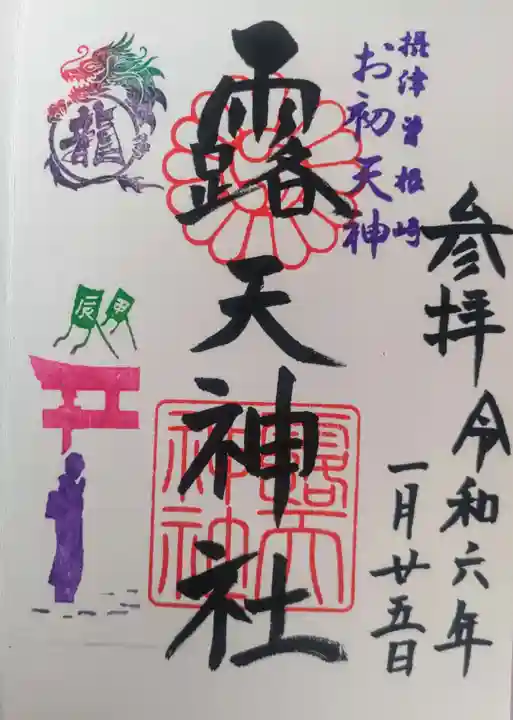 参拝 令和六年
一月廿五日
摂津曽根崎
お初天神
露天神社
龍
甲
辰
露天
神社